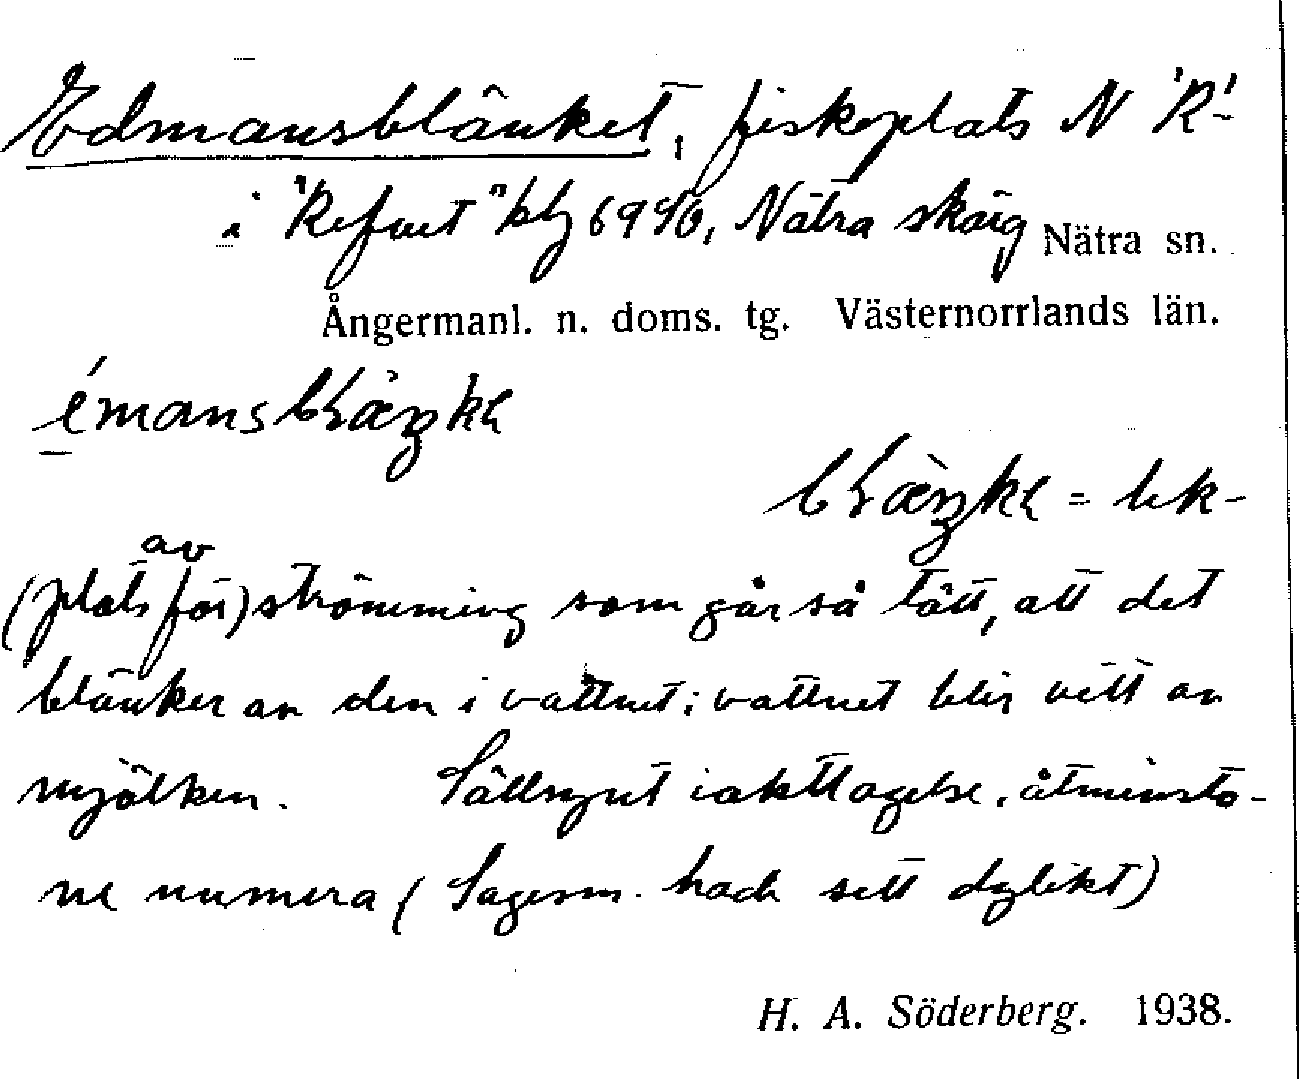 Edmansblänket, fiskeplats N 'R'-
i "Refuet" blz 6940, Nätra skärg Nätra sn.
Ångermanl. n. doms. tg. Västernorrlands län.
émansblæŋke
blæ̀ŋke = lek-
av
(plats för) strömming som går så tätt, att det
blänker av den i vattnet; vattnet blir vitt av
mjölken. Sällsynt iakttagelse, åtminsto-
ne numera (Sagesm. hade sett dylikt)
H. A. Söderberg. 1938.